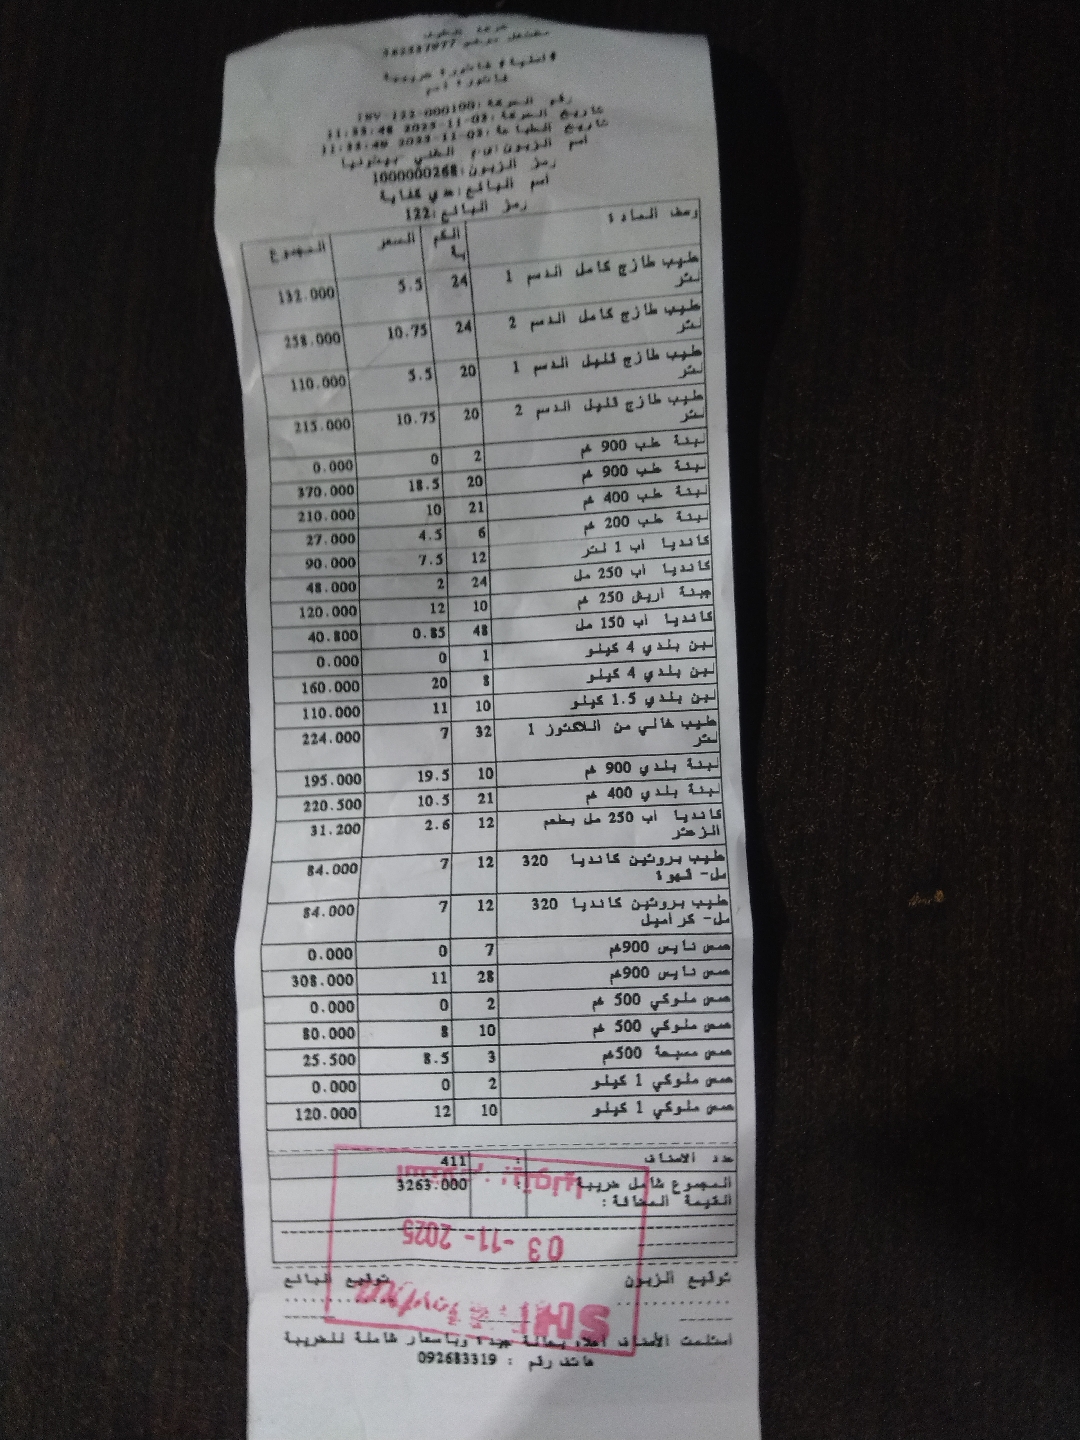 مشتغل مرخص 562557077
فاتورة ضريبية
رقم الحركة: INV-122-000100
تاريخ الحركة: 2025-11-03 11:33:48
تاريخ الطباعة: 2025-11-03 11:33:49
رمز الزبون: 1000000268
اسم البائع: عدي كفاية
رمز البائع: 122
وصف المادة الكمية السعر المجموع
حليب طازج كامل الدسم 1 لتر 24 5.5 132.000
حليب طازج كامل الدسم 2 لتر 24 10.75 258.000
حليب طازج قليل الدسم 1 لتر 20 5.5 110.000
حليب طازج قليل الدسم 2 لتر 20 10.75 215.000
لبنة طب 900 غم 2 0 0.000
لبنة طب 900 غم 20 18.5 370.000
لبنة طب 400 غم 21 10 210.000
لبنة طب 200 غم 6 4.5 27.000
كانديا اب 1 لتر 12 7.5 90.000
كانديا اب 250 مل 24 2 48.000
جبنة اريش 250 غم 10 12 120.000
كانديا اب 150 مل 48 0.85 40.800
لبن بلدي 4 كيلو 1 0 0.000
لبن بلدي 4 كيلو 8 20 160.000
لبن بلدي 1.5 كيلو 10 11 110.000
حليب خالي من اللاكتوز 1 لتر 32 7 224.000
لبنة بلدي 900 غم 10 19.5 195.000
لبنة بلدي 400 غم 21 10.5 220.500
كانديا اب 250 مل بطعم الزعتر 12 2.6 31.200
حليب بروتين كانديا 320 مل- قهوة 12 7 84.000
حليب بروتين كانديا 320 مل- كراميل 12 7 84.000
حمص نايس 900غم 7 0 0.000
حمص نايس 900غم 28 11 308.000
حمص ملوكي 500 غم 2 0 0.000
حمص ملوكي 500 غم 10 8 80.000
حمص مسبحة 500غم 3 8.5 25.500
حمص ملوكي 1 كيلو 2 0 0.000
حمص ملوكي 1 كيلو 10 12 120.000
عدد الاصناف : 411
المجموع شامل ضريبة القيمة المضافة : 3263.000
03 -11- 2025
توقيع الزبون توقيع البائع
استلمت الأصناف اعلاه بحالة جيدة وباسعار شاملة للضريبة
هاتف رقم : 092683319